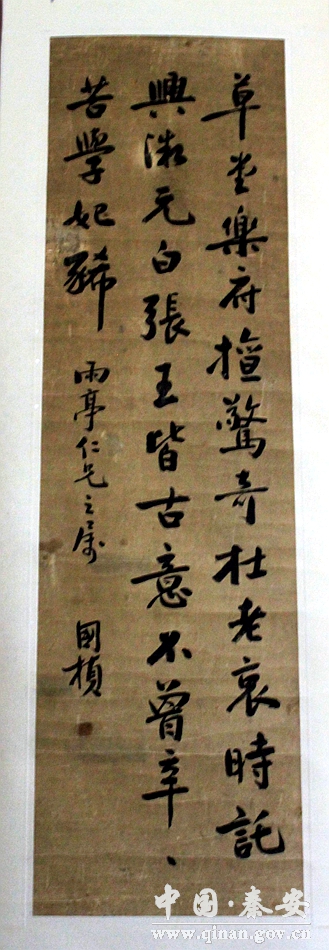 草堂樂府擅驚奇杜老哀時託
興微元白張王皆古意不曾辛、
苦學妃豨
雨亭仁兄之屬
國楨
中国·秦安
www.qinan.gov.cn